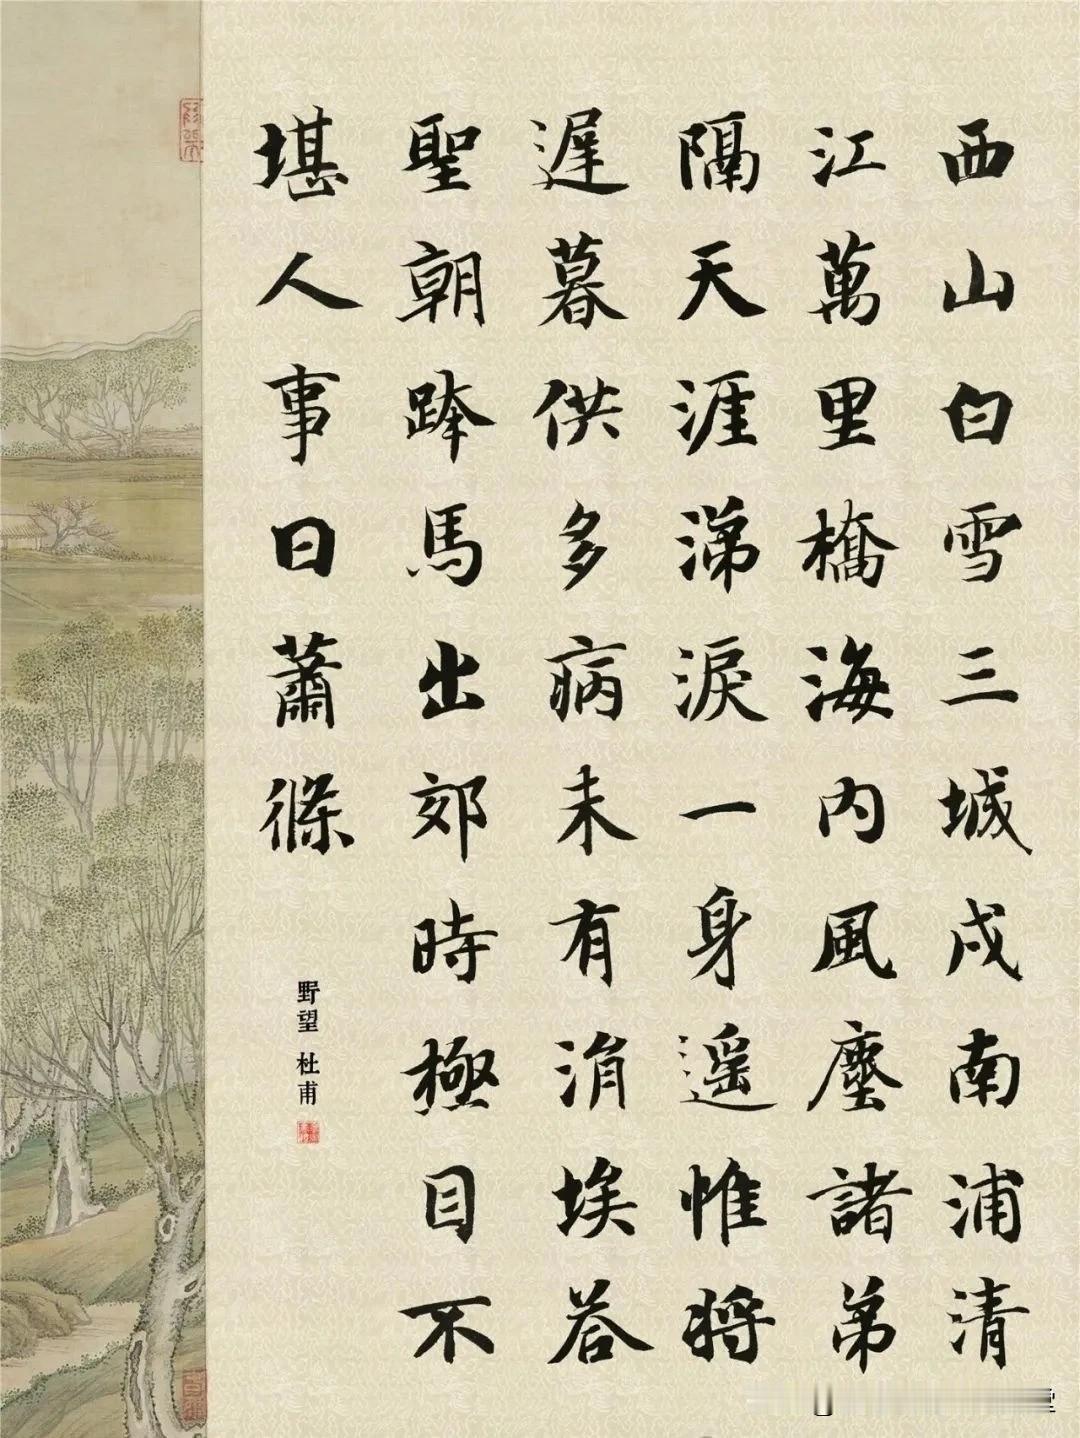 西山白雪三城戍南浦清
江萬里橋海內風塵諸弟
隔天涯涕淚一身遥惟將
遲暮供多病未有涓埃荅
聖朝跨馬出郊時極目不
堪人事日蕭條
野望 杜甫